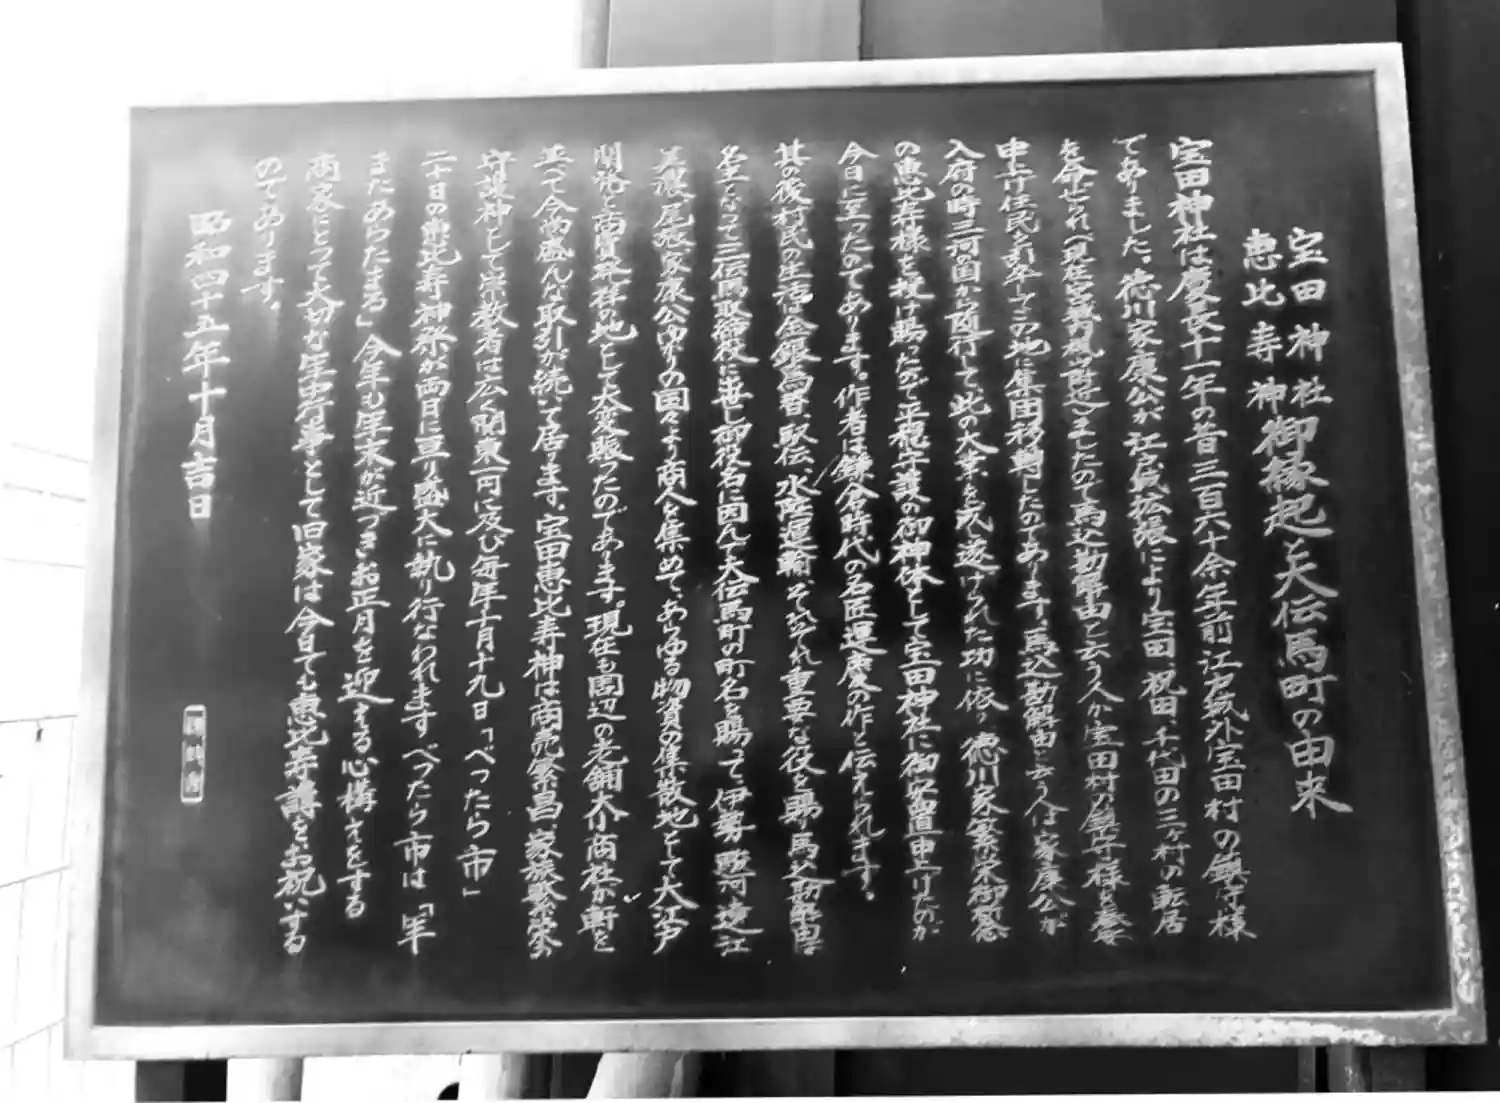 宝田神社
恵比寿神
御縁起と大伝馬町の由来
宝田神社は慶長十一年の昔三百六十余年前江戸城外宝田村の鎮守様
でありました。徳川家康公が江戸城拡張により宝田、祝田、千代田の三ヶ村の転居
を命ぜられ(現在宮城内楓山附近)ましたので馬込勘解由と云う人が宝田村の鎮守様を奉安
申上げ住民を引率してこの地に集団移動したのであります。馬込勘解由と云う人は家康公が
入府の時三河の国から随行して、此の大業を成し遂げられた功に依り、徳川家繁栄御祈念
の恵比寿様を授け賜ったので平穏守護の御神体として宝田神社に御安置申上げたのが
今日に至ったのであります。作者は鎌倉時代の名匠運慶の作と伝えられます。
其の後村民の生活は金銀為替、駅伝、水陸運輸、それぞれ重要な役を賜り馬込勘解由は
名主となって三伝馬取締役に出世し御役名に因んで大伝馬町の町名を賜って、伊勢、駿河、遠江
美濃、尾張、家康公ゆかりの国々より商人を集めて、あらゆる物資の集散地として大江戸
開発と商賈発祥の地として大変賑ったのであります。現在も周辺の老舗大小商社が軒を
並べて今尚盛んな取引が続いて居ります。宝田恵比寿神は商売繁昌、家族繁栄の
守護神として崇敬者は広く関東一円に及び毎年十月十九日「べったら市」
二十日の恵比寿神祭が両日に亘り盛大に執り行なわれますべったら市は「年
またあらたまる」今年も年末が近づきお正月を迎える心構えをする
商家にとって大切な年中行事として旧家は今日でも恵比寿講をお祝いする
のであります。
昭和四十五年十月吉日